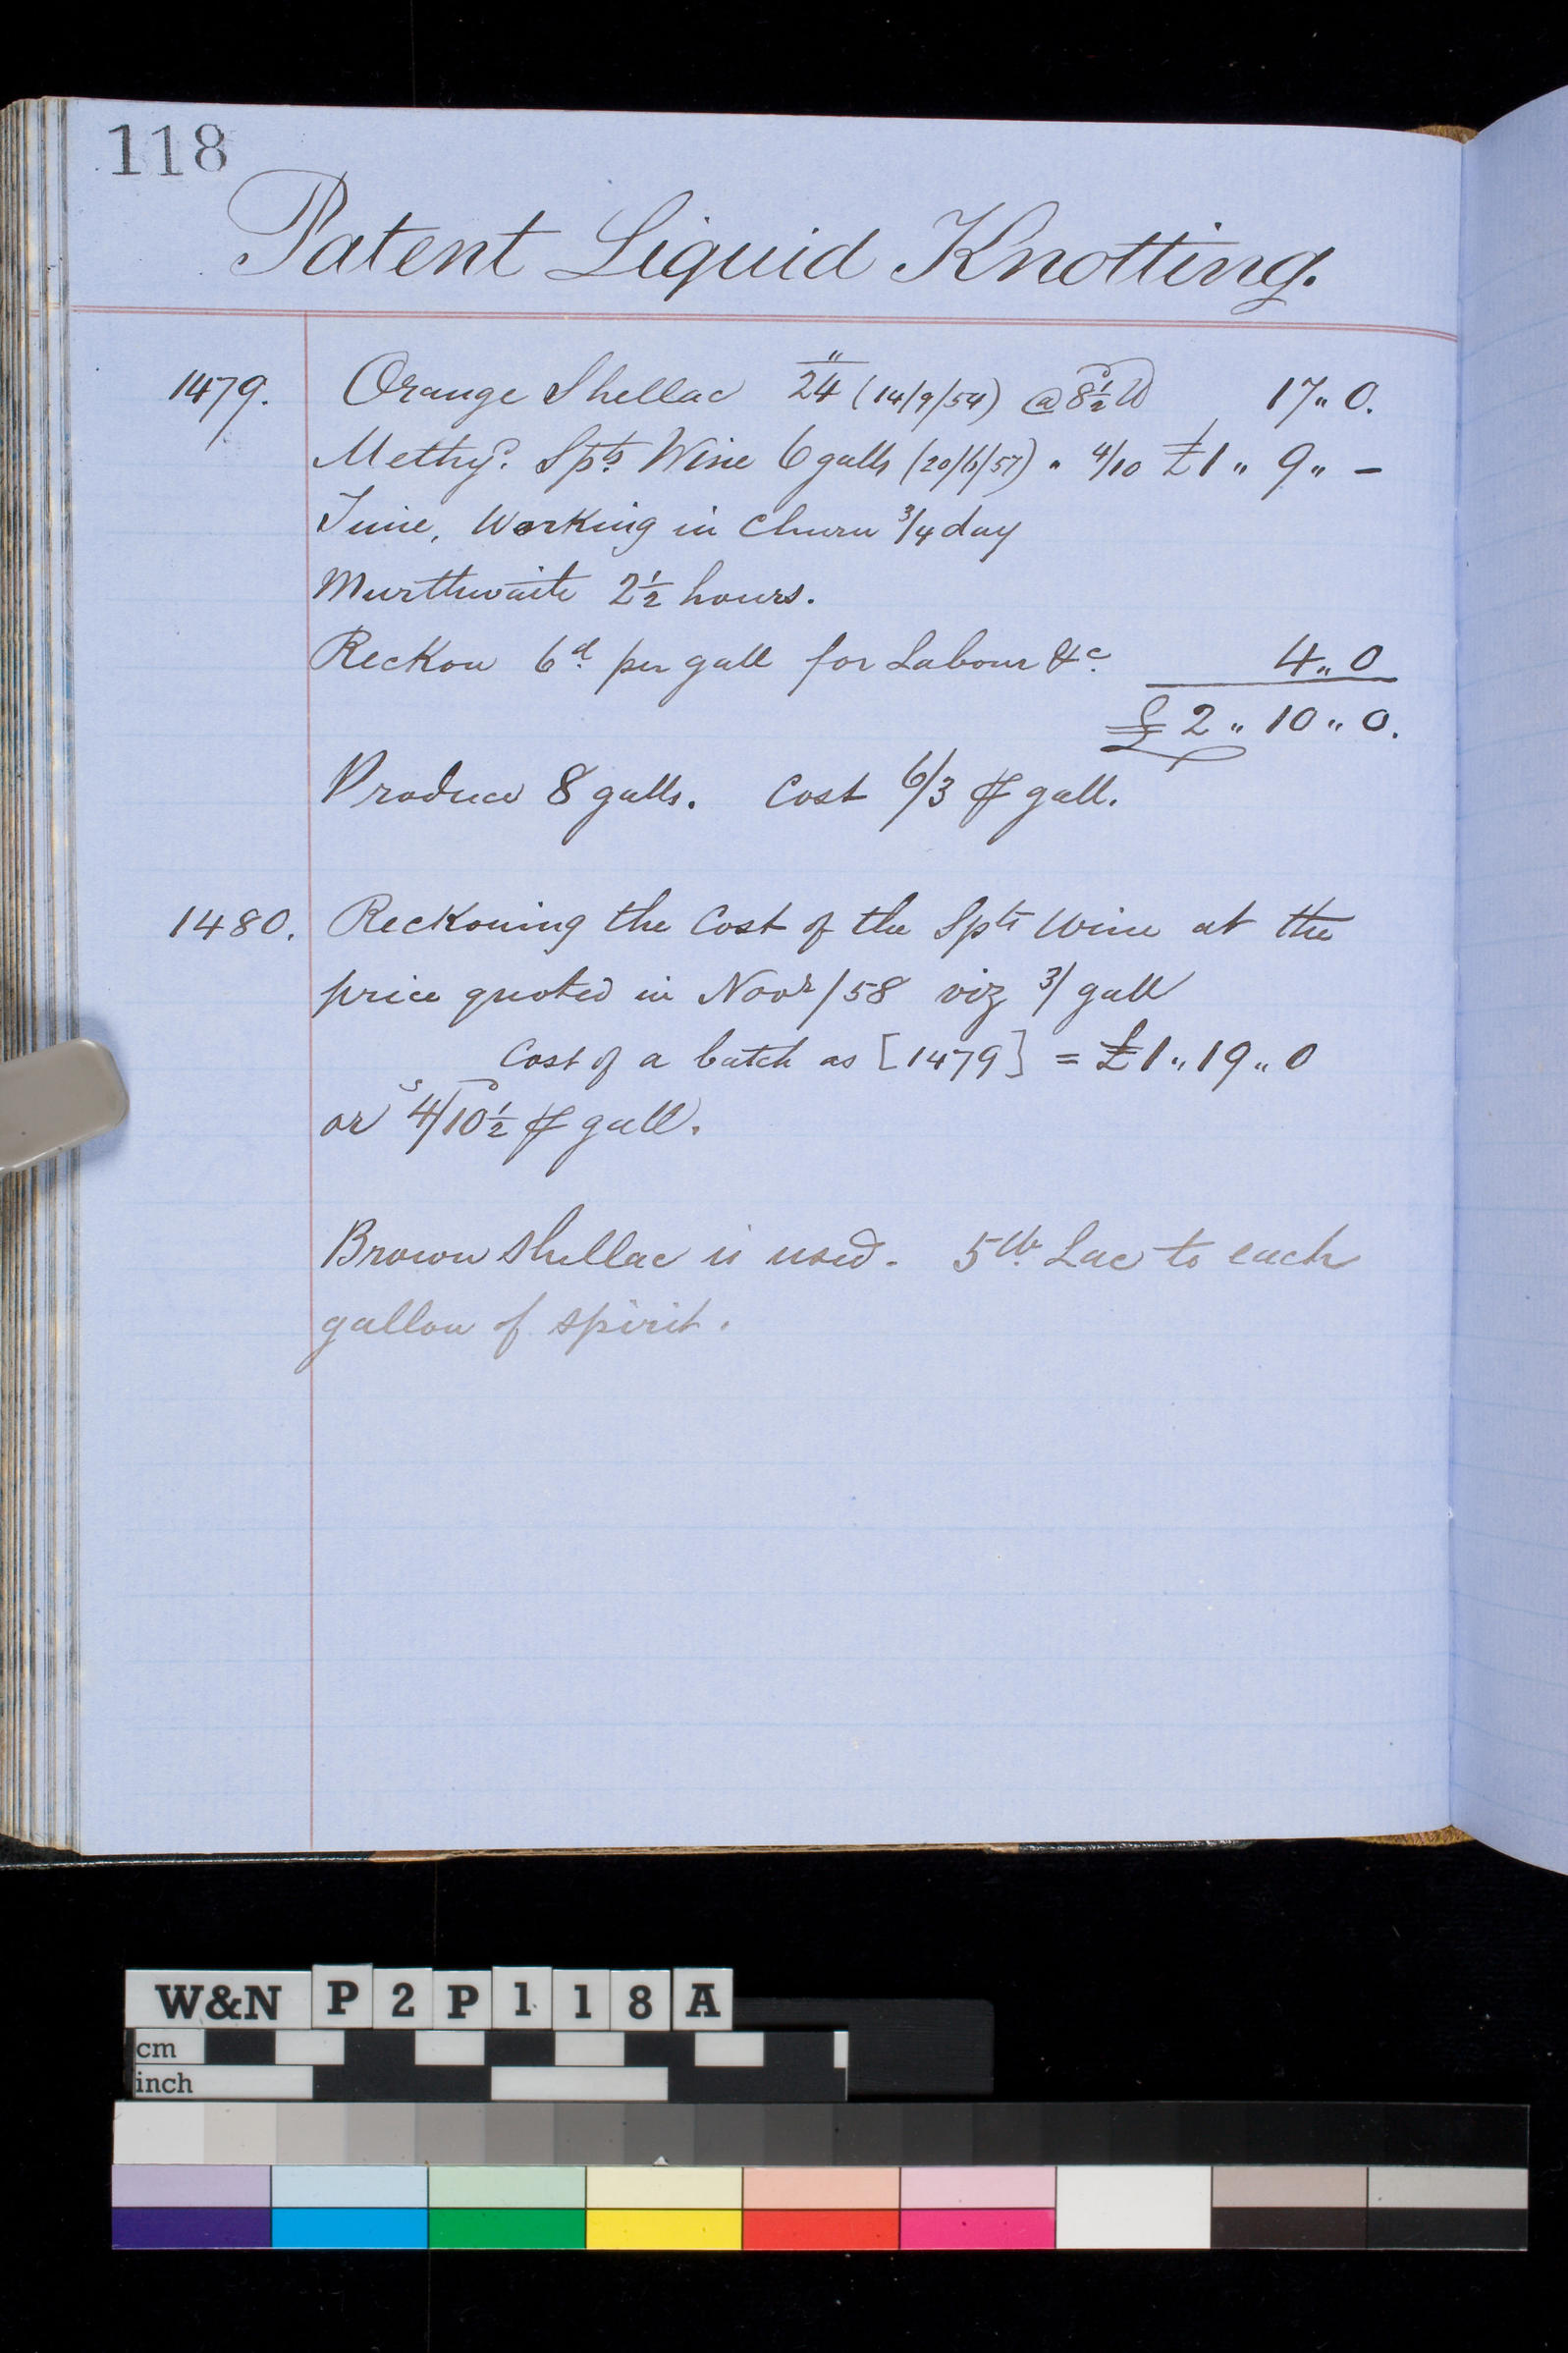 118
Patent Liquid Knotting.
1479. Orange Shellac 24 (14/9/54) @ 8½ 17 " 0.
Methyd. Spts Wine 6 galls (20/6/57) " 4/10 £1 " 9 " –
Time, Working in Churn ¾ day
Murthwaite 2½ hours.
Reckon 6d. per gall for Labour &c. 4 " 0
£2 " 10 " 0.
Produce 8 galls. Cost 6/3 ⅌ gall.
1480. Reckoning the Cost of the Spts Wine at the
price quoted in Novr/58 viz 3/ gall
Cost of a batch as [1479] = £1 " 19 " 0
or 4/10½ ⅌ gall.
Brown Shellac is used. 5 lb. Lac to each
gallon of spirit.
W&N P2P118A
cm
inch